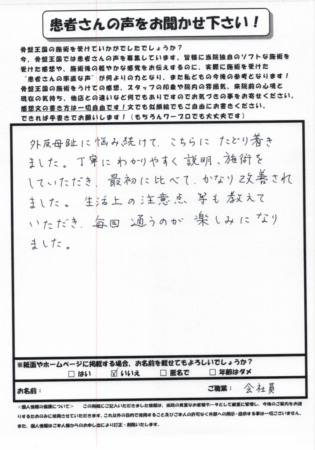 患者さんの声をお聞かせ下さい！
骨盤王国の施術を受けていかがでしたでしょうか？
今、骨盤王国では患者さんの声を募集しています。皆様に当院独自のソフトな施術を
受けた感想や、施術後の軽やかな感覚をお伝えするのに、実際に施術を受けた
"患者さんの率直な声"が何よりの力となり、また私どもの今後の参考となります！
骨盤王国の施術をうけての感想、スタッフの印象や院内の雰囲気、来院前の心境と
現在の気持ち、他店との違いなど何でもありのままお気づきの事をお寄せください。
感想文の書き方は一切自由です！文でも似顔絵でもご自由にお書きください。
できれば手書きでお願いします！（もちろんワープロでも大丈夫です）
外反母趾に悩み続けて、こちらに たどり着き
ました。丁寧に わかりやすく 説明、施術を
していただき、最初に比べて、かなり改善され
ました。 生活上の注意点 等も教えて
いただき、毎回 通うのが 楽しみになり
ました。
※紙面やホームページに掲載する場合、お名前を載せてもよろしいでしょうか？
□ はい ☑ いいえ □ 匿名で □ 年齢はダメ
お名前： ご職業： 会社員